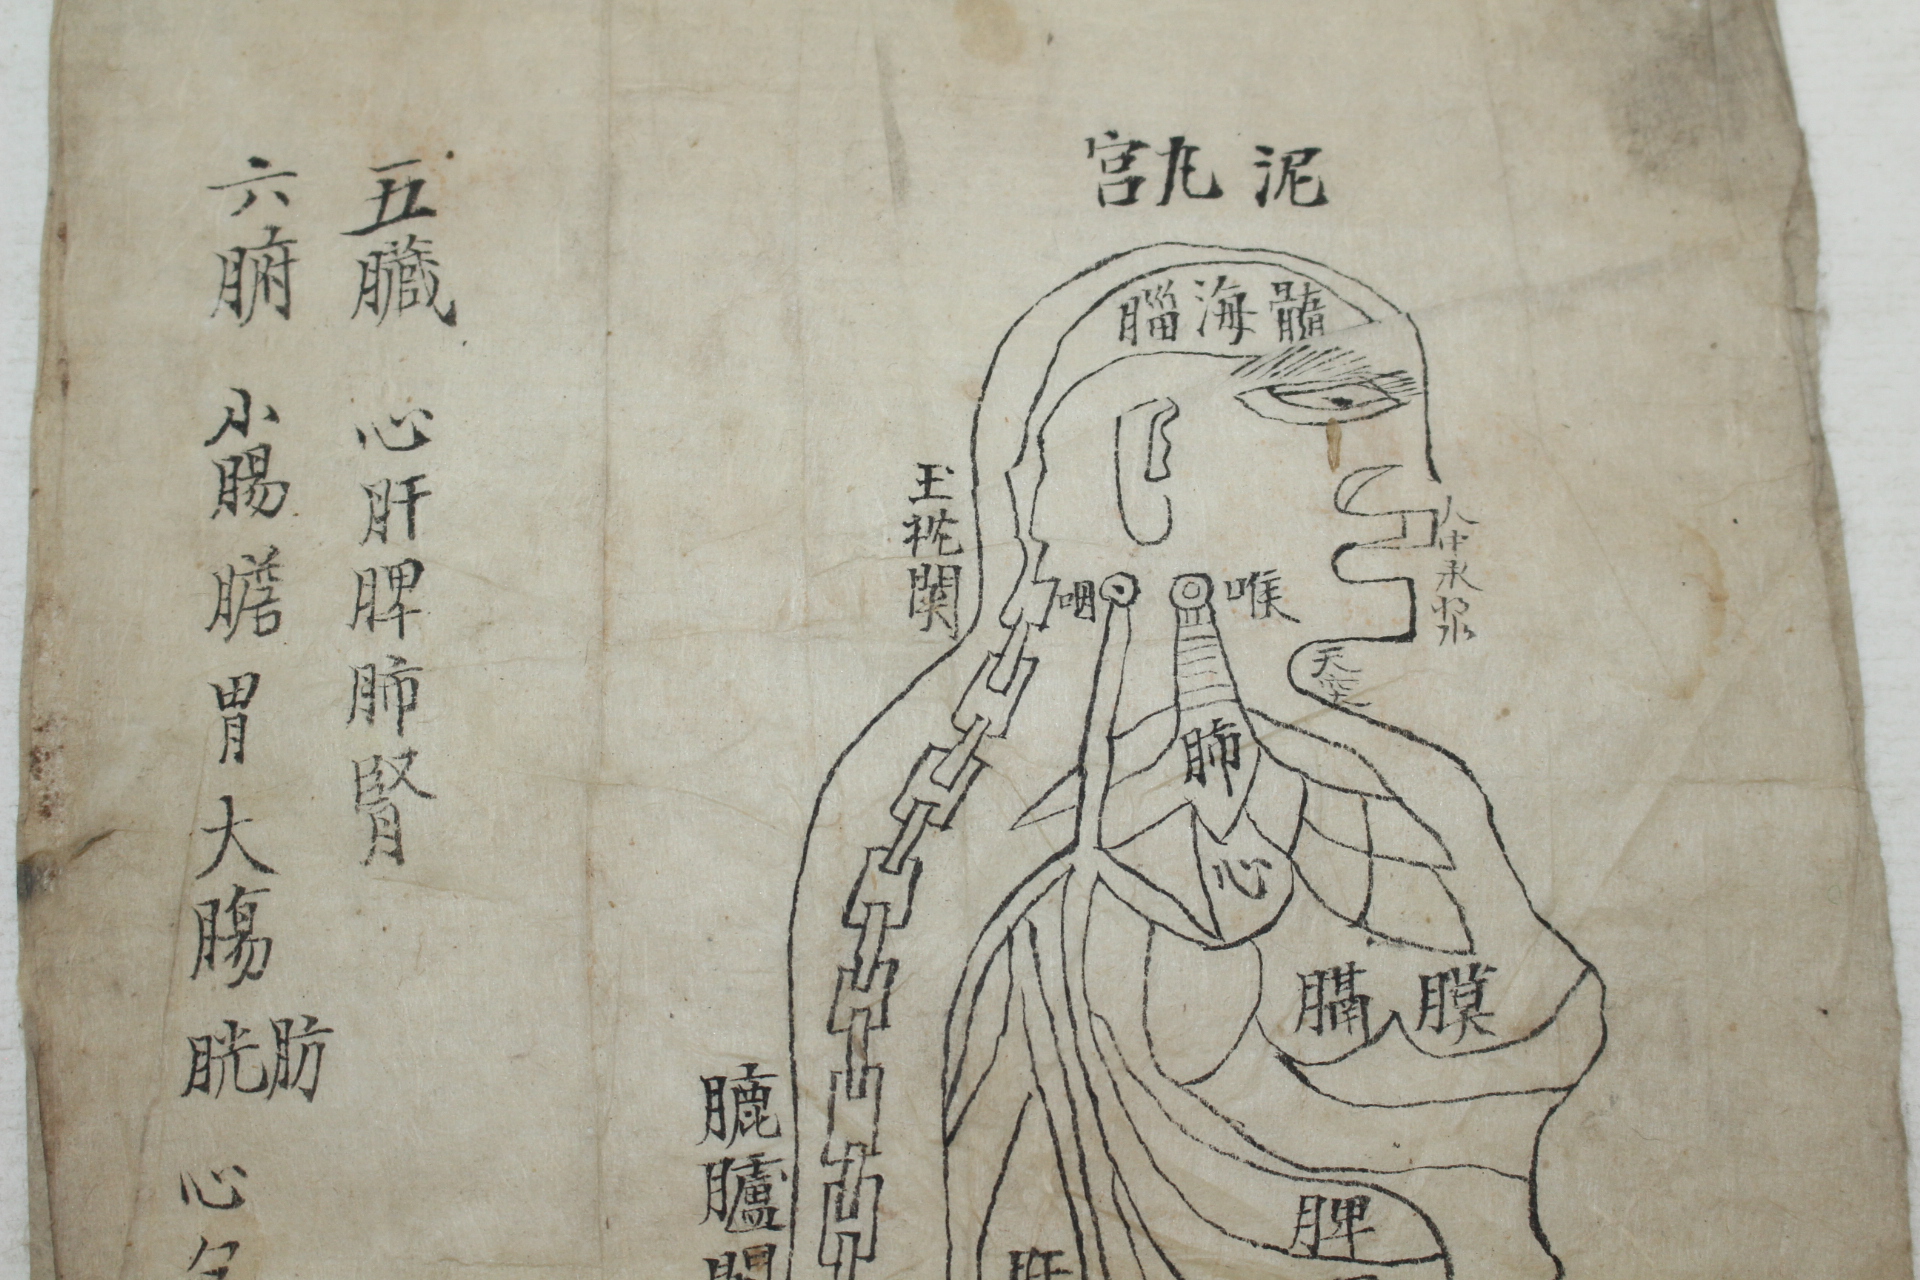 泥丸宮
髓海腦
人中承漿
天突
喉
咽
玉枕関
肺
心
膈膜
脾
肝
五臓 心肝脾肺腎
六腑 小腸膽胃大腸膀胱 心